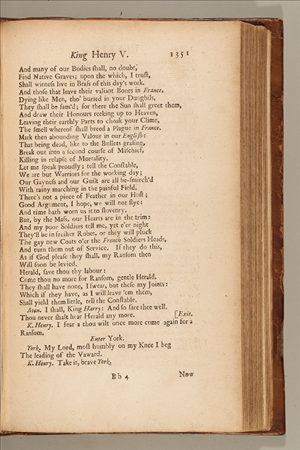 King Henry V. 1351
And many of our Bodies shall, no doubt,
Find Native Graves; upon the which, I trust,
Shall witness live in Brass of this day's work.
And those that leave their valiant Bones in France,
Dying like Men, tho' buried in your Dunghils,
They shall be fam'd; for there the Sun shall greet them,
And draw their Honours reeking up to Heaven,
Leaving their earthly Parts to choak your Clime,
The smell whereof shall breed a Plague in France.
Mark then abounding Valour in our English:
That being dead, like to the Bullets grasing,
Break out into a second course of Mischief,
Killing in relapse of Mortality.
Let me speak proudly; tell the Constable,
We are but Warriors for the working day;
Our Gayness and our Guilt are all be-smirch'd
With rainy marching in the painful Field.
There's not a piece of Feather in our Host;
Good Argument, I hope, we will not flye:
And time hath worn us into slovenry.
But, by the Mass, our Hearts are in the trim:
And my poor Soldiers tell me, yet e'er night
They'll be in fresher Robes, or they will pluck
The gay new Coats o'er the French Soldiers Heads,
And turn them out of Service. If they do this,
As if God please they shall, my Ransom then
Will soon be levied.
Herald, save thou thy labour:
Come thou no more for Ransom, gentle Herald,
They shall have none, I swear, but these my Joints:
Which if they have, as I will leave 'em them,
Shall yield them little, tell the Constable.
Mon. I shall, King Harry: And so fare thee well.
Thou never shalt hear Herald any more. [Exit.
K. Henry. I fear a thou wilt once more come again for a
Ransom.
Enter York.
York. My Lord, most humbly on my Knee I beg
The leading of the Vaward.
K. Henry. Take it, brave York,
Bb 4 Now